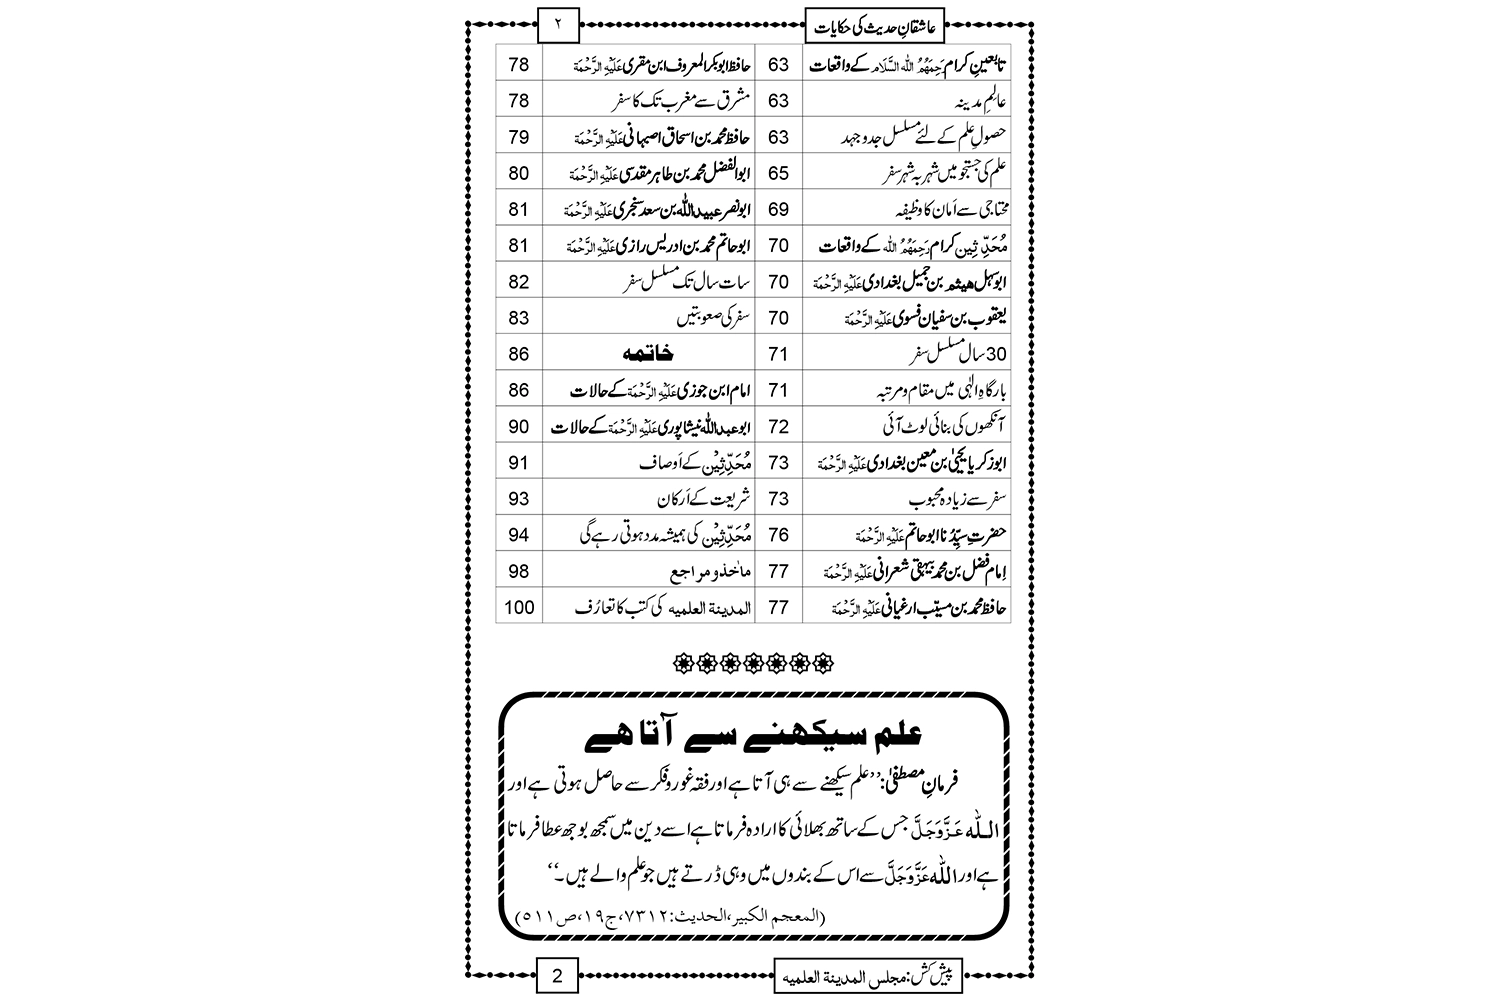 عاشقانِ حدیث کی حکایات ۲
تابعینِ کرام رَحِمَهُمُ اللّٰہ السَّلَام کے واقعات 63 حافظ ابوبکر المعروف ابن مقری عَلَیْہِ الرَّحْمَة 78
عالِمِ مدینہ 63 مشرق سے مغرب تک کا سفر 78
حصولِ علم کے لئے مسلسل جدوجہد 63 حافظ محمد بن اسحاق اصبہانی عَلَیْہِ الرَّحْمَة 79
علم کی جستجو میں شہر بہ شہر سفر 65 ابوالفضل محمد بن طاہر مقدسی عَلَیْہِ الرَّحْمَة 80
محتاجی سے اَمان کا وظیفہ 69 ابونصر عبیداللّٰہ بن سعد سنجری عَلَیْہِ الرَّحْمَة 81
مُحَدِّثِین کرام رَحِمَهُمُ اللّٰہ کے واقعات 70 ابوحاتم محمد بن ادریس رازی عَلَیْہِ الرَّحْمَة 81
ابوسہل ھیثم بن جمیل بغدادی عَلَیْہِ الرَّحْمَة 70 سات سال تک مسلسل سفر 82
یعقوب بن سفیان فسوی عَلَیْہِ الرَّحْمَة 70 سفر کی صعوبتیں 83
30 سال مسلسل سفر 71 خاتمه 86
بارگاہِ الٰہی میں مقام و مرتبہ 71 امام ابن جوزی عَلَیْہِ الرَّحْمَة کے حالات 86
آنکھوں کی بنائی لوٹ آئی 72 ابوعبداللّٰہ نیشاپوری عَلَیْہِ الرَّحْمَة کے حالات 90
ابوزکریا یحییٰ بن معین بغدادی عَلَیْہِ الرَّحْمَة 73 مُحَدِّثِیْن کے اَوصاف 91
سفر سے زیادہ محبوب 73 شریعت کے اَرکان 93
حضرتِ سیِّدُنا ابوحاتم عَلَیْہِ الرَّحْمَة 76 مُحَدِّثِیْن کی ہمیشہ مدد ہوتی رہے گی 94
اِمام فضل بن محمد بیہقی شعرانی عَلَیْہِ الرَّحْمَة 77 ماٰخذ و مراجع 98
حافظ محمد بن مسیّب ارغیانی عَلَیْہِ الرَّحْمَة 77 المدینة العلمیه کی کتب کا تعارُف 100
علم سیکھنے سے آتا ھے
فرمانِ مصطفیٰ: ’’علم سیکھنے سے ہی آتا ہے اور فقہ غور و فکر سے حاصل ہوتی ہے اور
اللّٰہ عَزَّوَجَلَّ جس کے ساتھ بھلائی کا ارادہ فرماتا ہے اسے دین میں سمجھ بوجھ عطا فرماتا
ہے اور اللّٰہ عَزَّوَجَلَّ سے اس کے بندوں میں وہی ڈرتے ہیں جو علم والے ہیں۔‘‘
(المعجم الکبیر،الحدیث:۷۳۱۲،ج۱۹،ص۵۱۱)
پیش کش: مجلس المدینة العلمیه 2